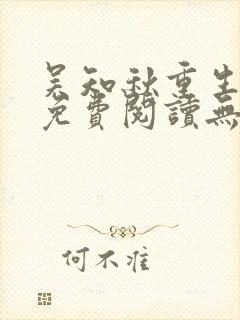 吴知秋重生
免費閱讀無
何不准